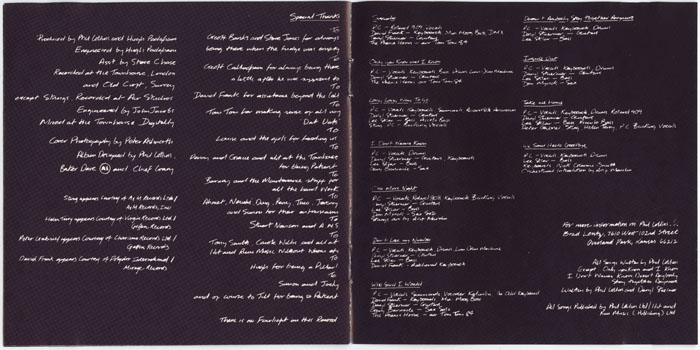 Produced by Phil Collins and Hugh Padgham
Engineered by Hugh Padgham
Asst by Steve Chase
Recorded at the Townhouse, London
and Old Croft, Surrey
except Strings Recorded at Air Studios
Engineered by John Jacobs
Mixed at the Townhouse Digitally
Cover Photography by Peter Ashworth
Album Designed by Phil Collins
and Chief Grary
Sting appears Courtesy of A+M Records Ltd /
A+M Records, Inc
Helen Terry appears Courtesy of Virgin Records Ltd /
Geffen Records
Peter Gabriel appears Courtesy of Charisma Records Ltd /
Geffen Records
David Frank appears Courtesy of Polydor International /
Mirage Records
Special Thanks
To
Geoff Banks and Steve Jones for always
being there when the fridge was empty
To
Geoff Callingham for always being there
a little after he was supposed to
To
David Frank for assistance beyond the call
To
Tom Tom for making sense of all my
'Dat Dats'
To
Laurie and the girls for feeding us
To
Danny and Gracie and all at the Townhouse
for being Patient
To
Barney and the Maintenance staff for
all the hard work
To
Ahmet, Nesuhi, Doug, Perry, Thea, Jeremy
and Simon for their enthusiasm
To
Stuart Newton and A.M.S
To
Tony Smith, Carole Willis and all at
Hit and Run Music Without whom etc
To
Hugh for being a Patient!
To
Simon and Joely
and of course to Jill for being so Patient
There is no Fairlight on this Record
Sussudio
P.C - Roland 909, Vocals
David Frank - Keyboards, Mini Moog Bass, DMX
Daryl Stuermer - Guitar
The Phenix Horns - arr Tom Tom 84
Only you Know and I Know
P.C - Vocals Keyboards Drums Linn Drum Machine
Daryl Stuermer - Guitar
The Phenix Horns - arr Tom Tom 84
Long Long Way To Go
P.C - Vocals Keyboards Simmons
Daryl Stuermer - Guitar
Sting P.C - Backing Vocals
I Don't Wanna Know
P.C - Vocals Drums
Daryl Stuermer - Guitar
Lee Sklar - Bass
Gary Barnacle - Sax
One More Night
P.C - Vocals Keyboards Backing Vocals
Daryl Stuermer - Guitar
Lee Sklar - Bass
Don Myrick - Sax Solo
Don't Lose my Number
P.C - Vocals Keyboards Drums Linn Drum Machine
Daryl Stuermer - Guitar
Lee Sklar - Bass
David Frank - Additional Keyboards
Who Said I Would
Daryl Stuermer - Guitar
Gary Barnacle - Sax Solo
The Phenix Horns - arr Tom Tom 84
Doesn't Anybody Stay Together Anymore
P.C - Vocals Keyboards Drums
Daryl Stuermer - Guitars
Lee Sklar - Bass
Inside Out
P.C - Vocals Keyboards Drums
Daryl Stuermer - Guitars
Lee Sklar - Bass
Don Myrick - Sax
Take me Home
P.C - Vocals Keyboards Drums Roland 909
Daryl Stuermer - Guitars
Lee Sklar - Bass
Peter Gabriel Sting Helen Terry P.C Backing Vocals
We Said Hello Goodbye
P.C - Vocals Drums
Lee Sklar - Bass
For more information on Phil Collins,
Brad Lentz, 7610 West 102nd Street
Overland Park, Kansas 66212
All Songs Written by Phil Collins
Except Only you Know and I Know
I Don't Wanna Know, Doesn't Anybody
Stay Together Anymore
Written by Phil Collins and Daryl Stuermer
All Songs Published by Phil Collins Ltd / Hit and
Run Music (Publishing) Ltd